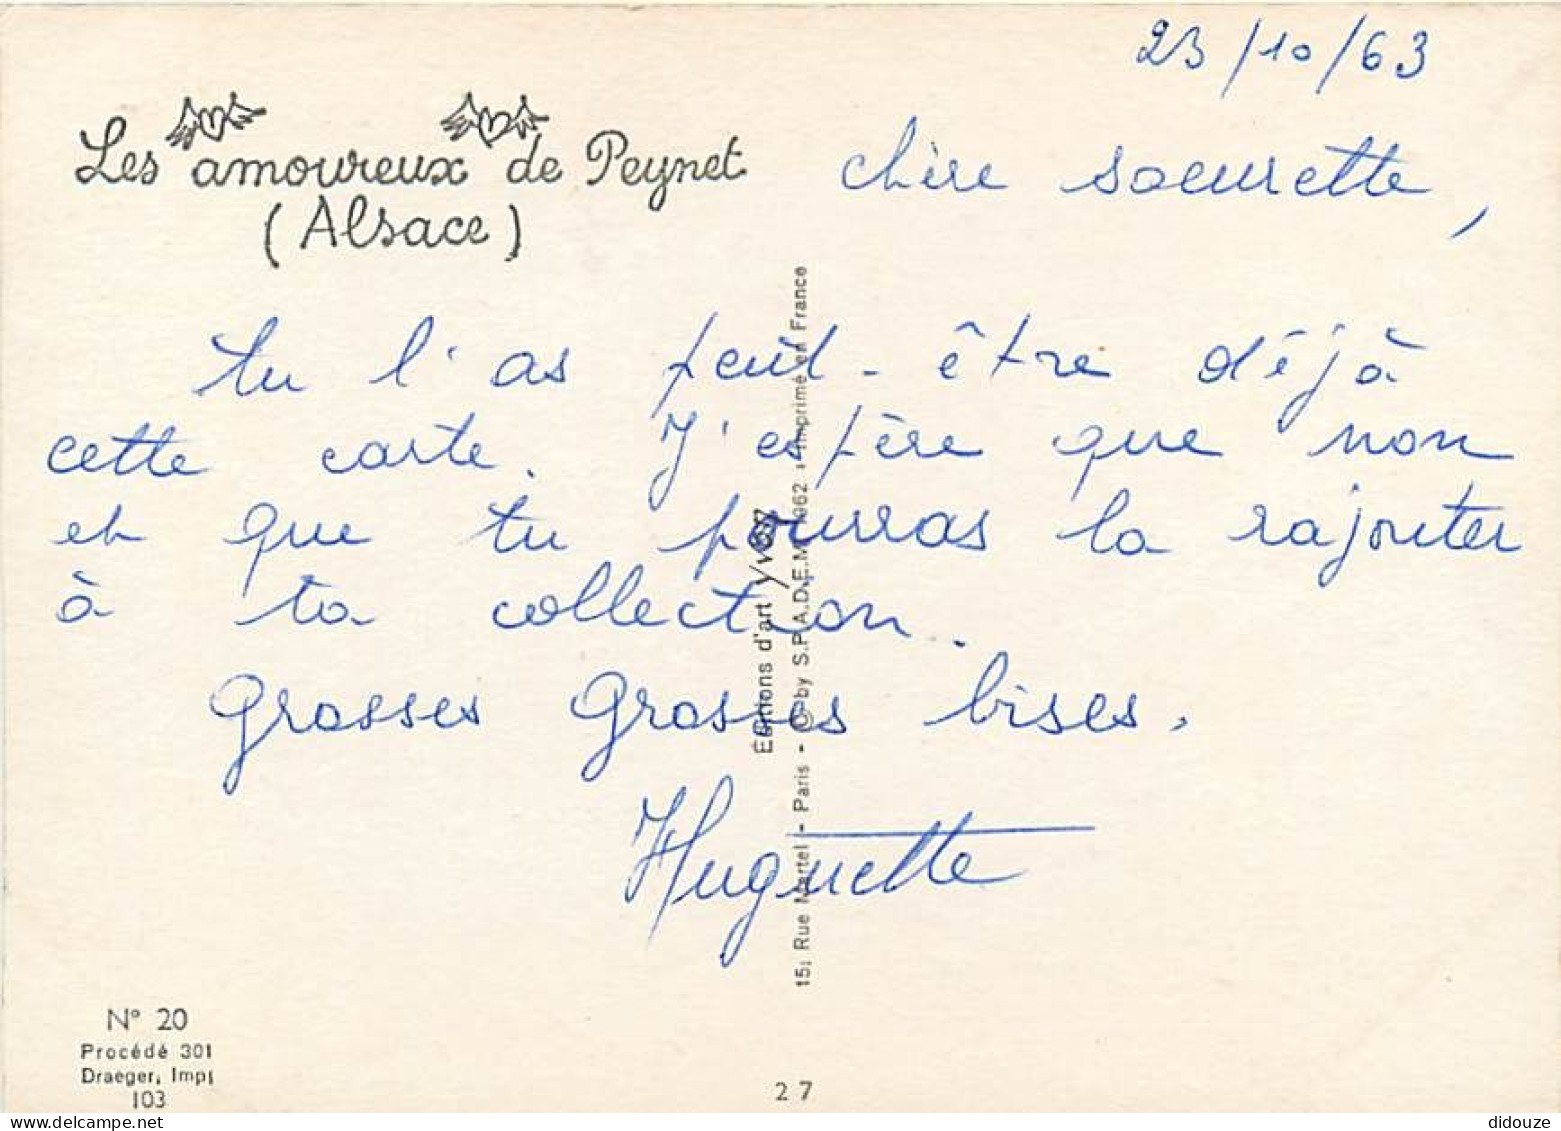 23/10/63
Les amoureux de Peynet
(Alsace)
chère soeurette,
tu l'as peut-être déjà
cette carte. J'espère que non
et que tu pourras la rajouter
à ta collection.
grosses grosses bises.
Huguette
Éditions d'art yvon
15, Rue Martel - Paris - © by S.P.A.D.E.M. 1962 - Imprimé en France
N° 20
Procédé 301
Draeger, Imp.
103
27
didouze